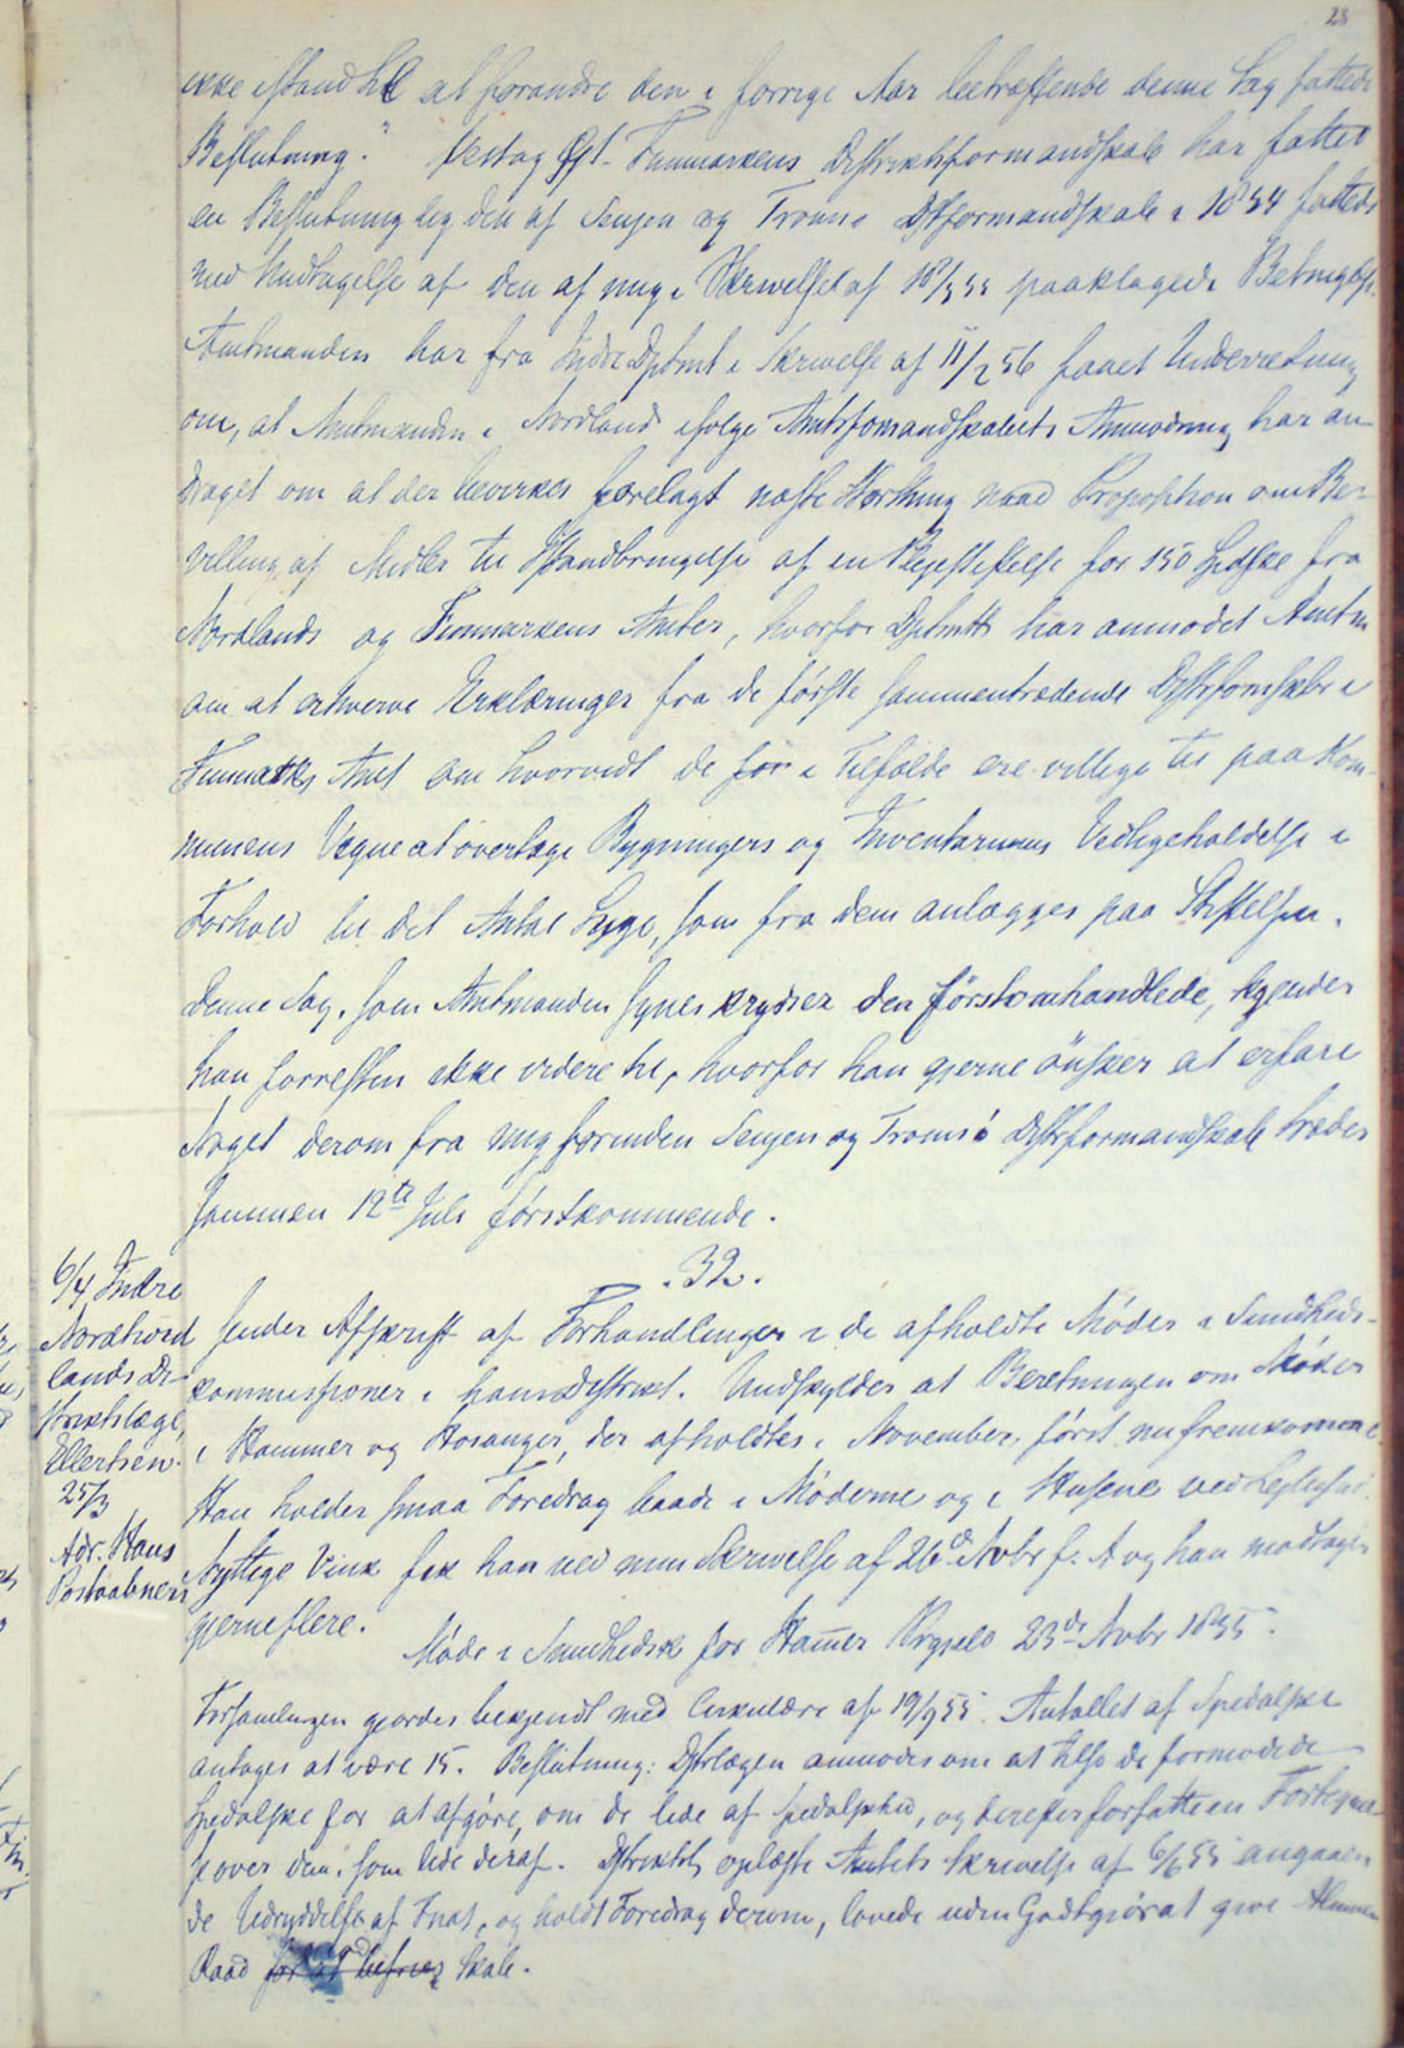 23
ikke istand til at forandre den i forrige Aar betræffende denne Sag fattede
Beslutning." Vest og Øst-Finmarkens Distriktsformandskab har fattet
en Beslutning lig den af Senjen og Tromsø Dformandskab i 1854 fattede
med Undtagelse af den af mig i Skrivelse af 18/5 55 paaklagede Betingelse.
Amtmanden har fra Indre Dptmt i Skrivelse af 11/2 56 faaet Underretning
om, at Amtmanden i Nordland ifølge Amtsformandskabets Anmodning har an-
draget om at der bevirkes forelagt næste Storthing naad Proposition om Be-
villing af Midler til Istandbringelse af en Plejestiftelse for 150 Spedske fra
Nordlands og Finmarkens Amter, hvorfor Dptmtt har anmodet Amtm
om at erhverve Erklæringer fra de første sammentrædende Distrformskber i
Finmarks Amt om hvorvidt de for i Tilfælde ere villige til paa Kom-
munens Vegne at overtage Bygningers og Inventariums Vedligeholdelse i
Forhold til det Antal Syge, som fra dem anlægges paa Stiftelsen.
Denne Sag, som Amtmanden synes krydser den førstomhandlede, kjender
han forresten ikke videre til, hvorfor han gjerne ønsker at erfare
Noget derom fra mig forinden Senjen og Tromsø Distrformandskab træder
sammen 12te Juli førstkommende.
32.
6/4 Indre
Nordhord
lands Di-
striktslæge,
Ellertsen.
25/3
Adr. Hans
Postaabneri
sender Afskrift af Forhandlinger i de afholdte Møder i Sundheds-
kommissioner i hans Distrikt. Undskylder at Beretningen om Møder
i Hammer og Hosanger, der afholdtes i November, først nu fremkomme.
Han holder smaa Foredrag baade i Møderne og i Husene ved Leilighed.
Nyttige Vink fik han ved min Skrivelse af 26de Novbr f. A og han modtager
gjerne flere.
Møde i Sundhedsk for Hamer Prgjeld 23de Novbr 1855.
Forsamlingen gjordes bekjendt med Cirkulære af 19/9 55. Antallet af Spedalske
antages at være 15. Beslutning: Distrlægen anmodes om at tilse de formodede
Spedalske for at afgøre, om de lide af Spedalskhed, og derefter forfatte en Fortegnel-
se over dem, som lide deraf. Distriktsl oplæste Amtets Skrivelse af 6/6 55 angaaen-
de Udryddelse af Fnat, og holdt Foredrag derom, lovede uden Godtgjør at give Almuen
Raad for at befries Skab.